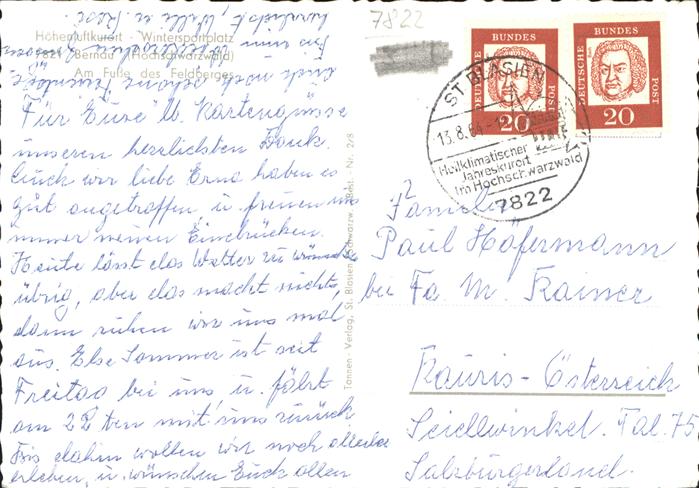 7822
Höhenluftkurort - Wintersportplatz
7821 Bernau (Hochschwarzwald)
Am Fuße des Feldberges
Für Eure lb. Kartengrüsse
unseren herzlichsten Dank.
Auch wir liebe Erna haben es
gut angetroffen u. freuen uns
immer neuen Eindrücken.
Heute lässt das Wetter zu wünschen
übrig, aber das macht nichts,
dann ruhen wir uns mal
aus. Else Sommer ist seit
Freitag bei uns u. fährt
am 22ten mit uns zurück
Bis dahin wollen wir noch allerlei
erleben, u. wünschen Euch allen
Euch noch schöne
herzlichst, Willi u. Rose.
Tannen-Verlag, St. Blasien Schwarzw. Best.-Nr. 2/8
DEUTSCHE BUNDESPOST
20
DEUTSCHE BUNDESPOST
20
ST BLASIEN
13.8.64
Heilklimatischer
Jahreskurort
im Hochschwarzwald
7822
Familie
Paul Höfermann
bei Fa. M. Rainer
Rauris-Österreich
Seidlwinkel. Tal 75,
Salzburgerland.